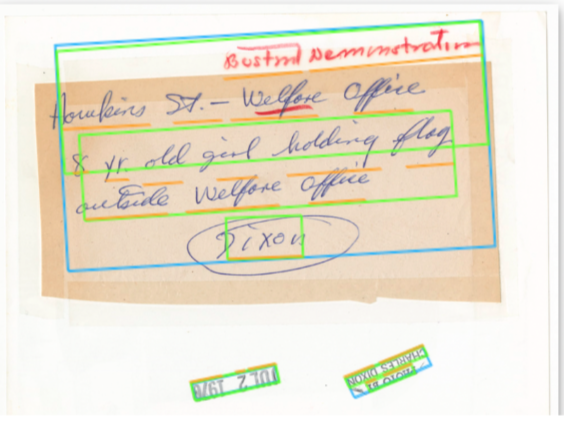 Boston Demonstration
Hawkins St. - Welfare Office
8 yr. old girl holding flag
outside Welfare Office
Dixon
JUL 2 197
PHOTO BY
CHARLES DIXON